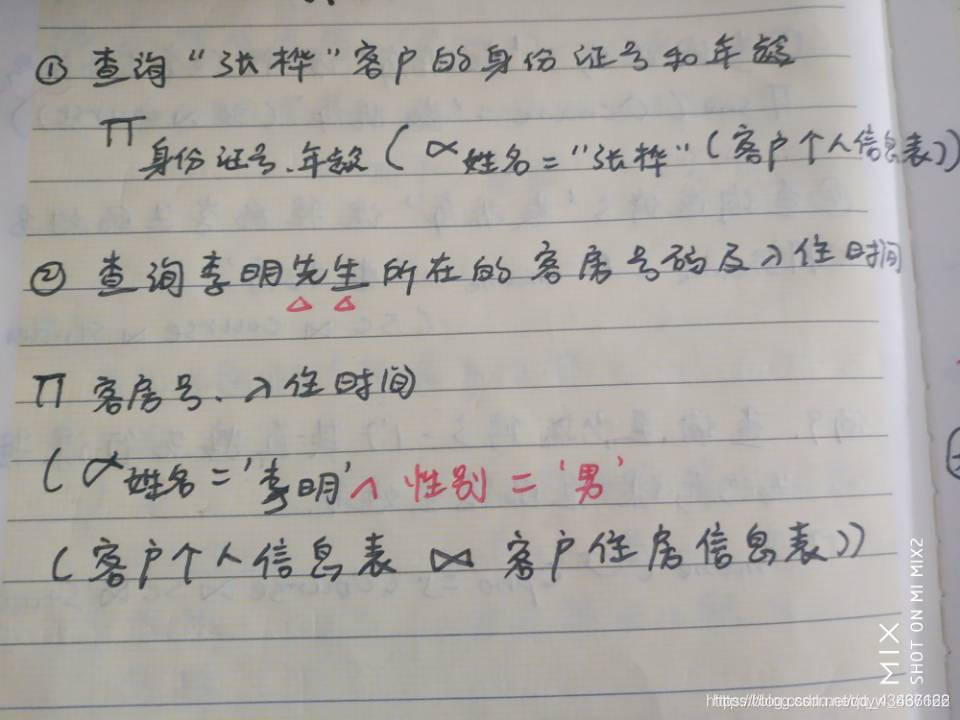 ① 查询“张桦”客户的身份证号和年龄
∏ 身份证号、年龄 ( ∝ 姓名 = “张桦” (客户个人信息表))
② 查询李明先生所在的客房号码及入住时间
∏ 客房号、入住时间
( ∝ 姓名 = '李明' ∧ 性别 = '男'
(客户个人信息表 ⋈ 客户住房信息表))
MIX
SHOT ON MI MIX2